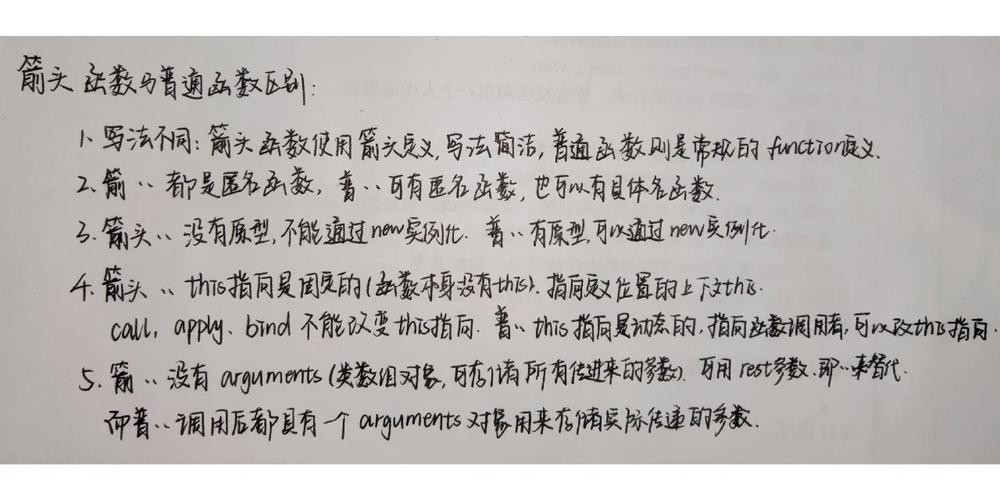 箭头函数与普通函数区别:
1. 写法不同:箭头函数使用箭头定义,写法简洁,普通函数则是常规的function定义.
2. 箭‥都是匿名函数,普‥可有匿名函数,也可以有具体名函数.
3. 箭头‥没有原型,不能通过new实例化. 普‥有原型,可以通过new实例化.
4. 箭头‥this指向是固定的(函数本身没有this). 指向定义位置的上下文this.
call, apply、bind不能改变this指向. 普‥this指向是动态的,指向函数调用者,可以改this指向.
5. 箭‥没有arguments(类数组对象,可存储所有传进来的参数). 可用rest参数.即‥来替代.
而普‥调用后都具有一个arguments对象用来存储实际传递的参数.